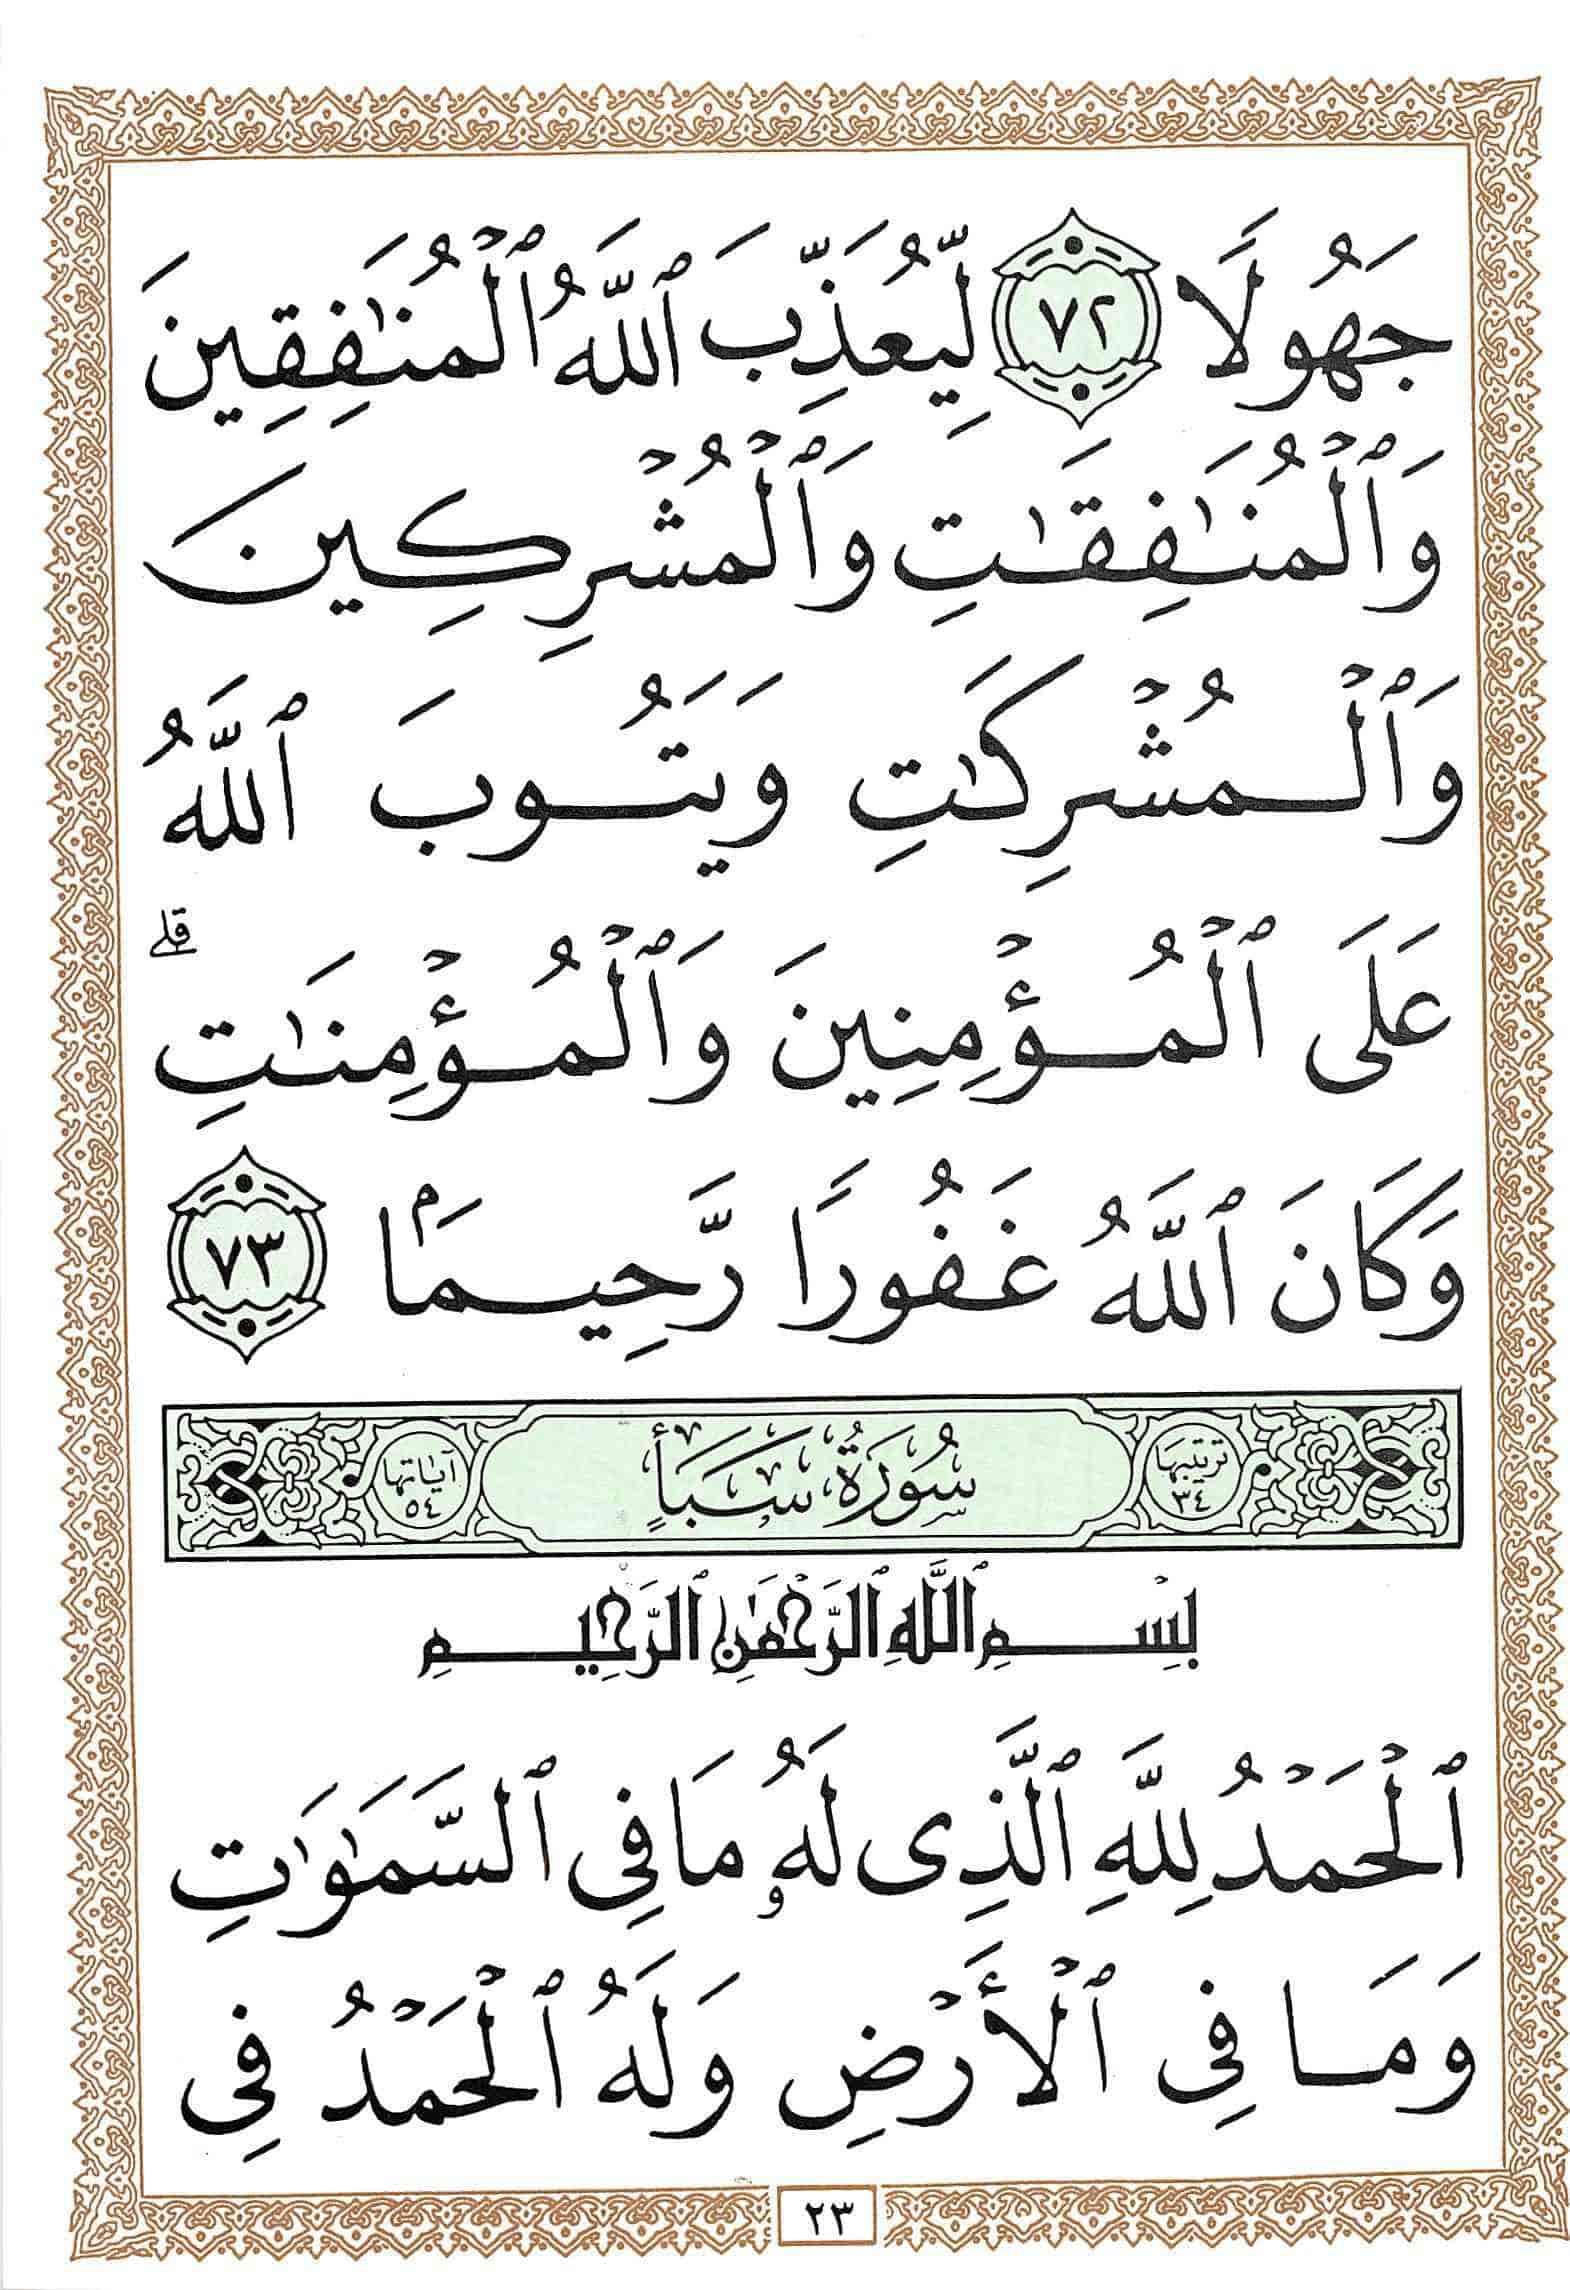 جَهُولًا ٧٢ لِّيُعَذِّبَ ٱللَّهُ ٱلْمُنَٰفِقِينَ
وَٱلْمُنَٰفِقَٰتِ وَٱلْمُشْرِكِينَ
وَٱلْمُشْرِكَٰتِ وَيَتُوبَ ٱللَّهُ
عَلَى ٱلْمُؤْمِنِينَ وَٱلْمُؤْمِنَٰتِ ۗ
وَكَانَ ٱللَّهُ غَفُورًا رَّحِيمًۢا ٧٣
ترتيبها ٣٤ سُورَةُ سَبَأٍ آياتها ٥٤
بِسْمِ ٱللَّهِ ٱلرَّحْمَٰنِ ٱلرَّحِيمِ
ٱلْحَمْدُ لِلَّهِ ٱلَّذِى لَهُۥ مَا فِى ٱلسَّمَٰوَٰتِ
وَمَا فِى ٱلْأَرْضِ وَلَهُ ٱلْحَمْدُ فِى
٢٣